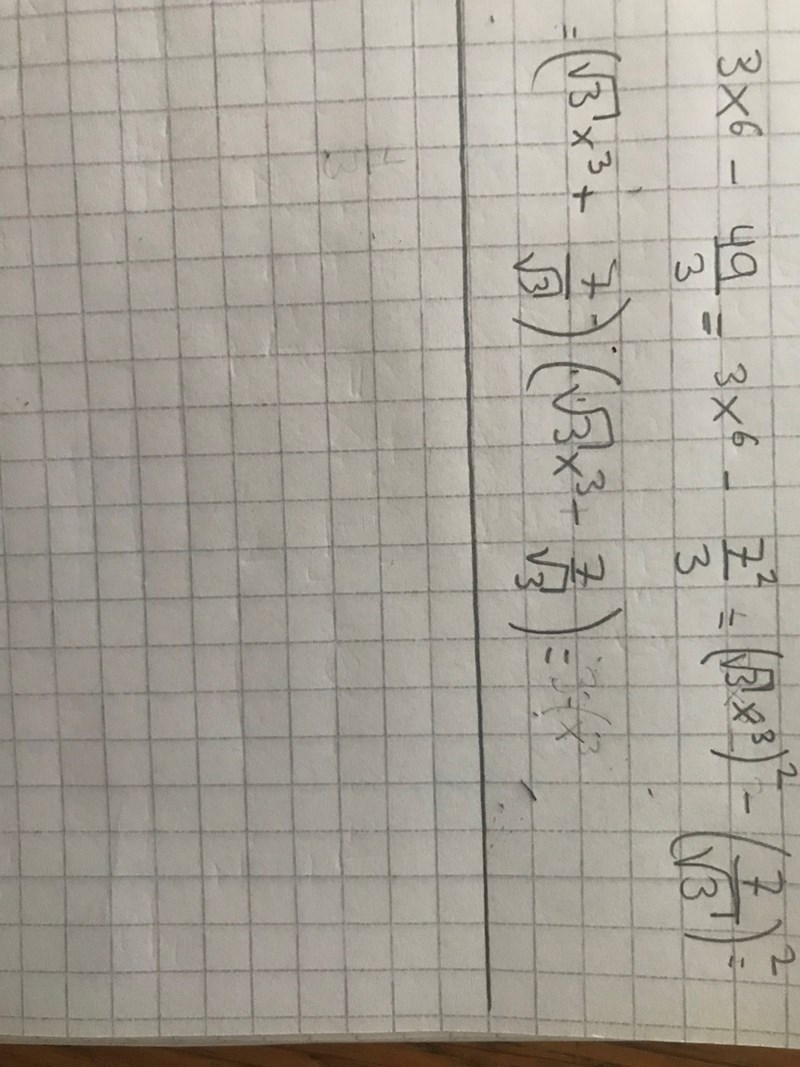 3x⁶ - 49/3 = 3x⁶ - 7²/3 = (√3 x³)² - (7/√3)² =
= (√3 x³ + 7/√3) (√3 x³ - 7/√3) =